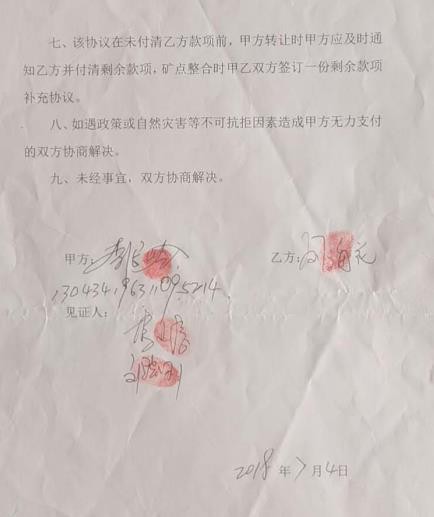 七、该协议在未付清乙方款项前，甲方转让时甲方应及时通
知乙方并付清剩余款项，矿点整合时甲乙双方签订一份剩余款项
补充协议。
八、如遇政策或自然灾害等不可抗拒因素造成甲方无力支付
的双方协商解决。
九、未经事宜，双方协商解决。
甲方：李
乙方：
见证人：
2018年7月4日